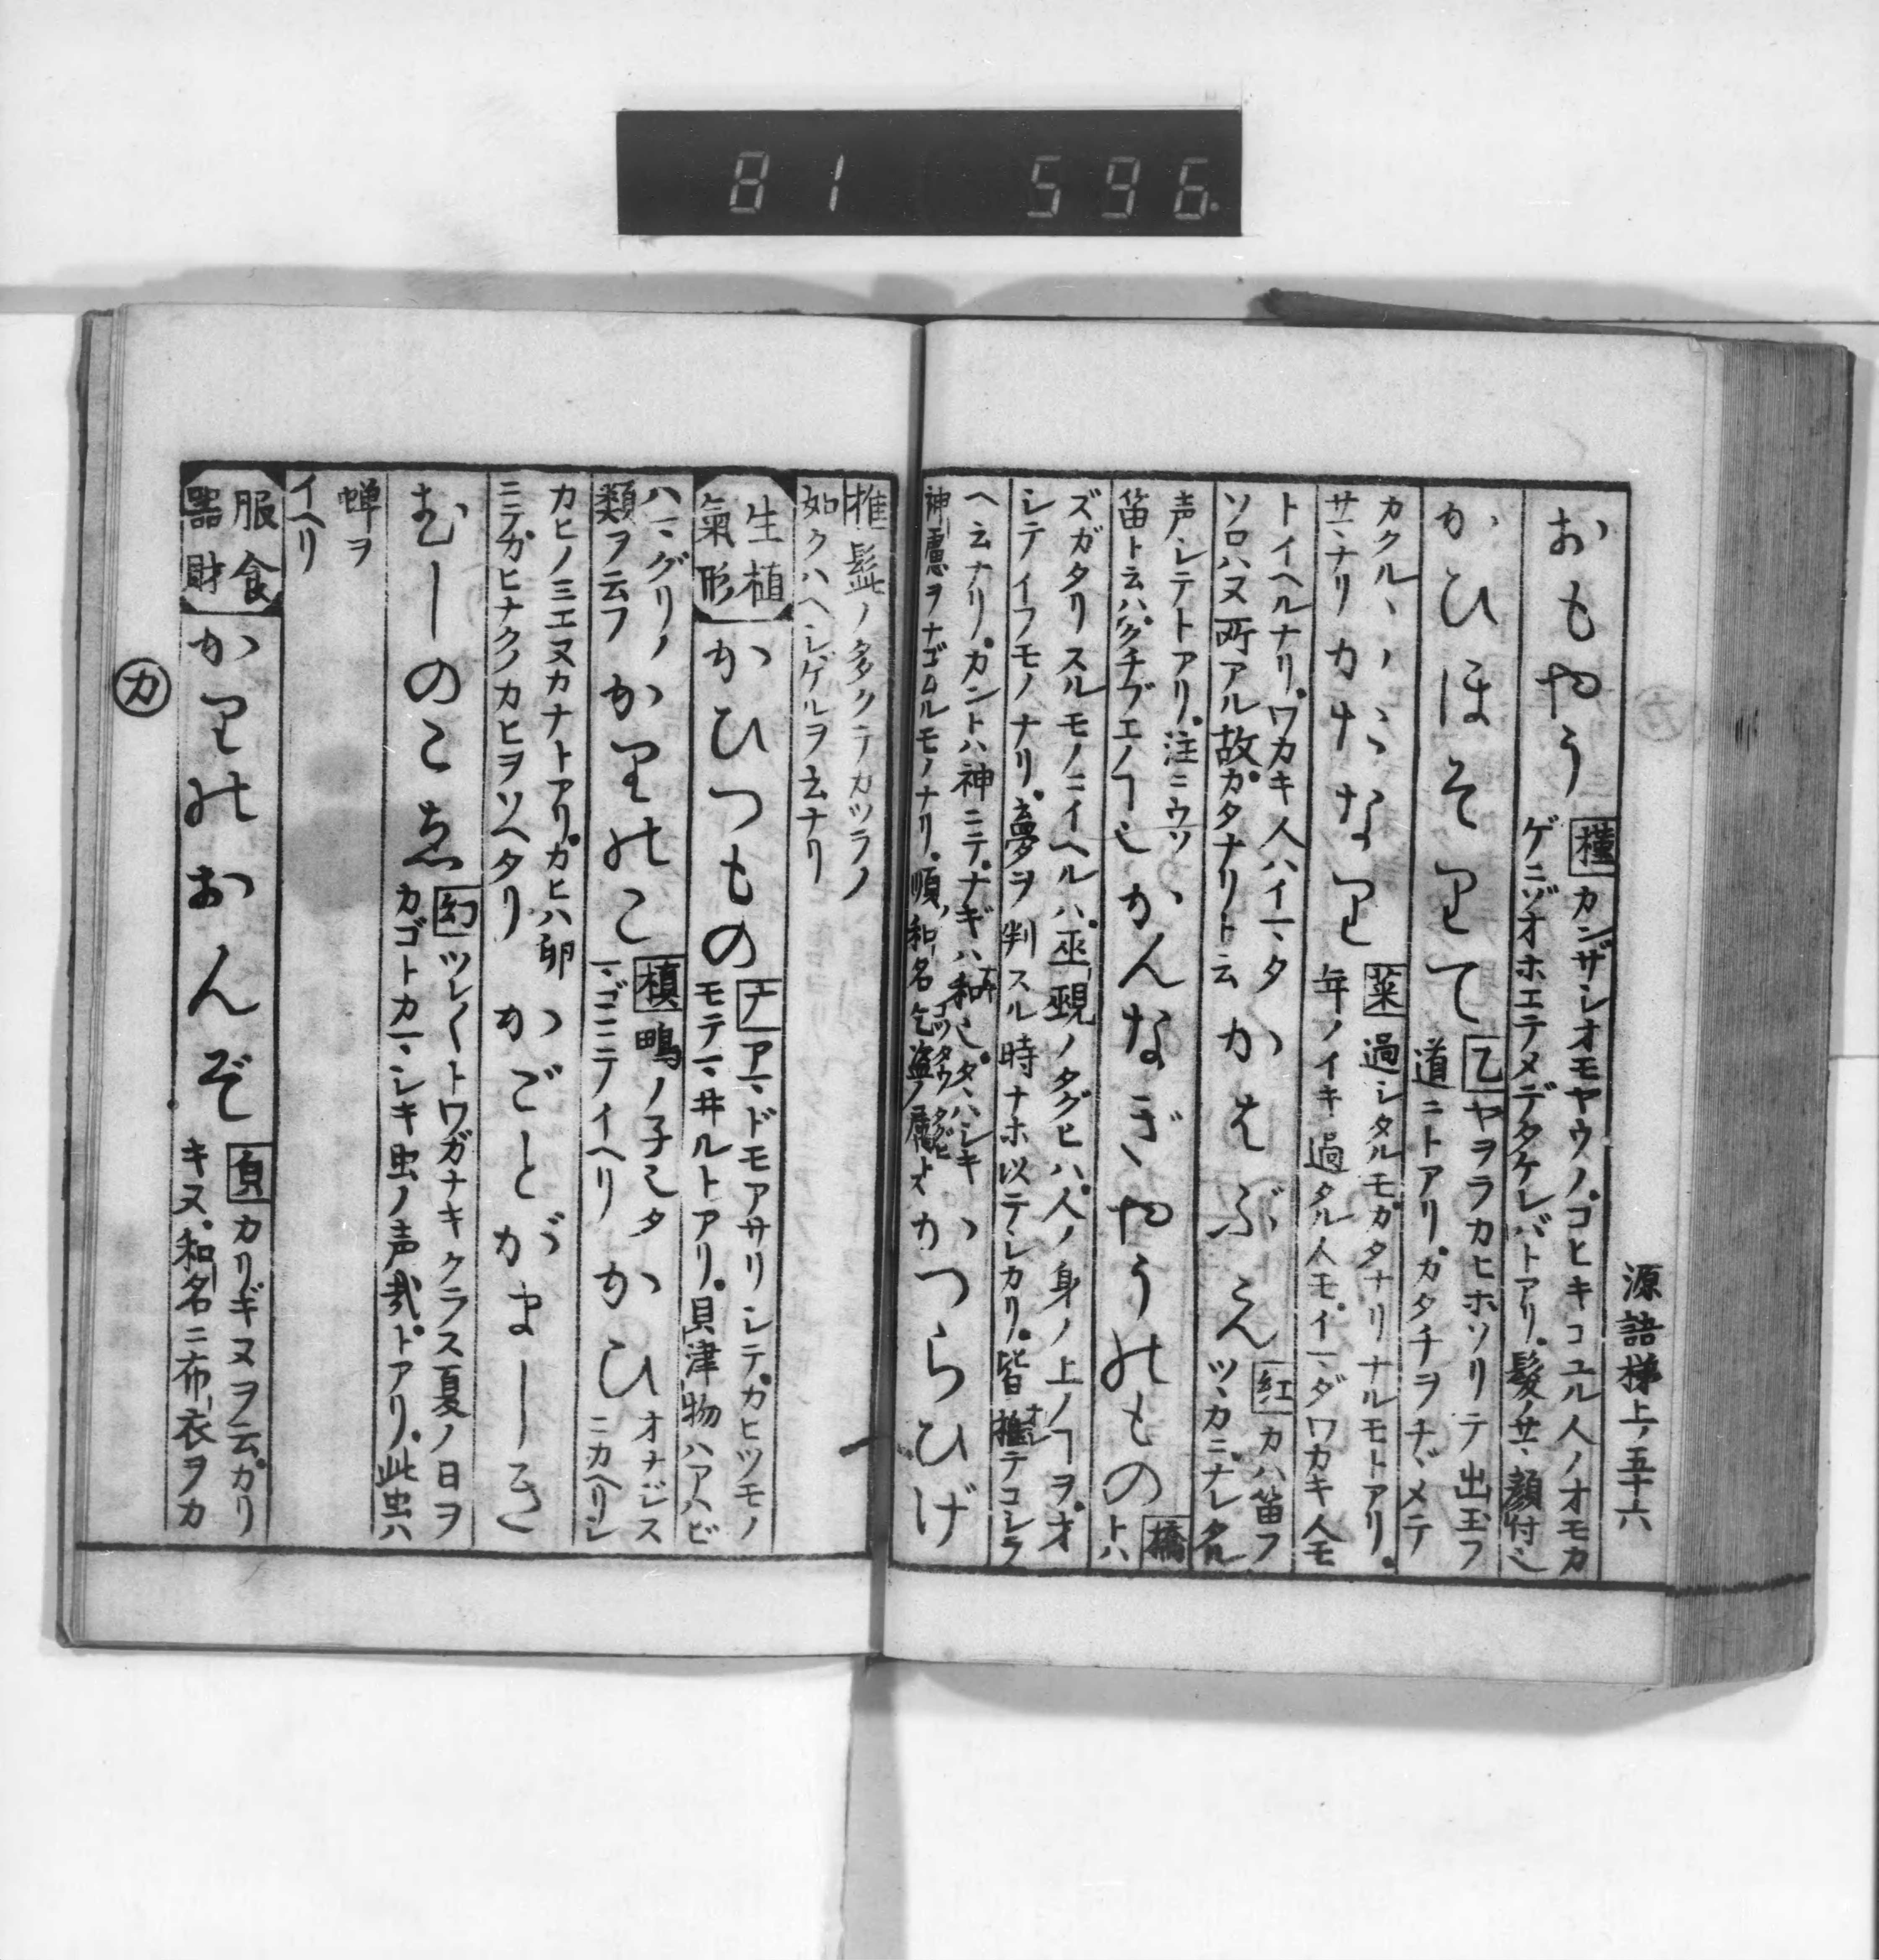 81 596
源語梯上ノ五十六
おもやう
槿カンザシオモヤウノ。コヒキコユル人ノオモカ
ゲニゾオホエテメデタケレバトアリ。髪ノサヽ顔付也
かひほそりて
乙ヤヲラカヒホソリテ出玉フ
道ニトアリ。カタチヲチヾメテ
カクルヽ
サマナリ
かたなり
菜過シタルモカタナリナルモトアリ。
年ノイキ過タル人モ。イマダワカキ人モ
トイヘルナリ。ワカキ人ハイマタ
ソロハヌ所アル故カタナリト云
かはぶえ
紅カハ笛フ
ツヽカニナレタル
声シテトアリ。注ニウソ
笛ト云ハクチブエノヿ也
かんなぎやうのもの
橋
トハ
ズガタリスルモノニイヘルハ。巫覡ノタグヒハ。人ノ身ノ上ノヿヲ。オ
シテイフモノナリ。夢ヲ判スル時ナホ以テシカリ。皆推テコレラ
ヘ云ナリ。カントハ神ニテ。ナギハ和也。
神慮ヲナゴムルモノナリ。順和名乞盗ノ属トス
かつらひげ
椎髭ノ多クテカツラノ
如クハヘシゲルヲ云ナリ
生植
氣形
かひつもの
アマドモアサリシテ。カヒツモノ
モテマヰルトアリ。貝津物ハアハビ
ハマグリノ
類ヲ云フ
かりのこ
槙鴨ノ子也タ
マゴニテイヘリ
かひ
オナジス
ニカヘリシ
カヒノミエヌカナトアリ。カヒハ卵
ニテカヒナクノカヒヲソヘタリ
かごとがましき
むしのこゑ
幻ツレ〲トワガナキクラス夏ノ日ヲ
カゴトガマシキ虫ノ声哉トアリ。此虫ハ
蝉ヲ
イヘリ
服食
器財
かりのおんぞ
カリギヌヲ云。カリ
キヌ。和名ニ布衣ヲカ
カ